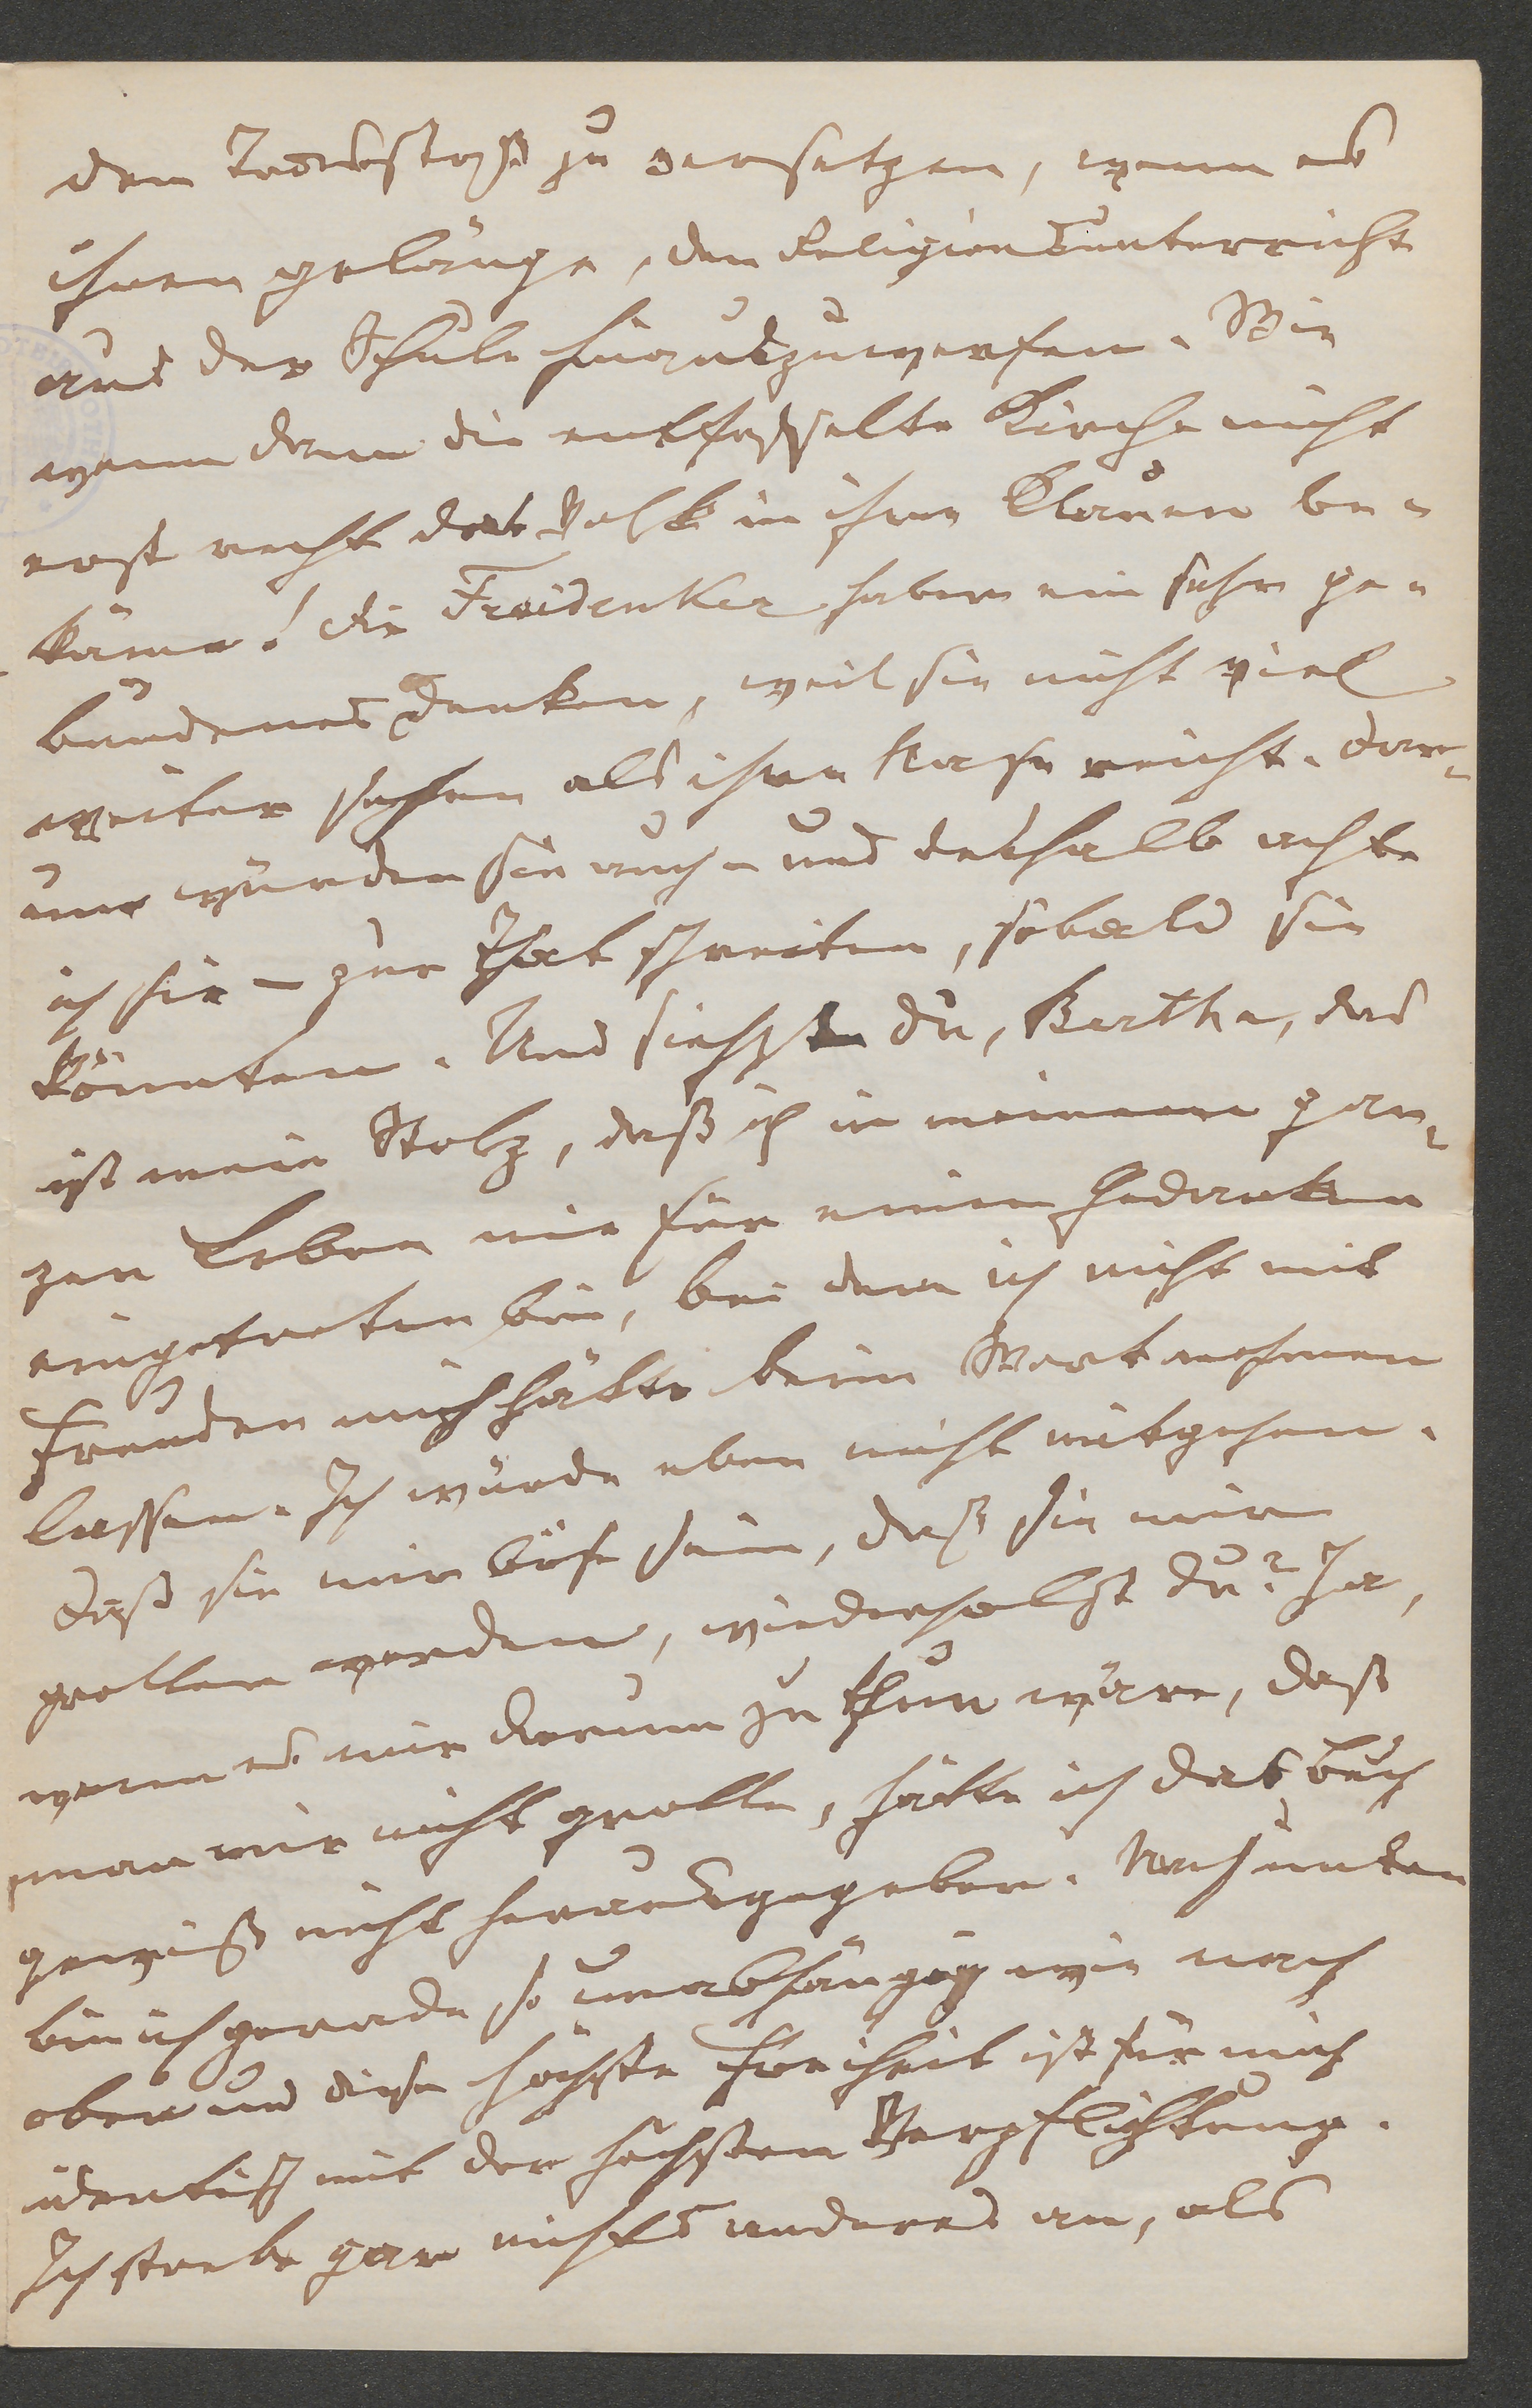 den Todesstoß zu versetzen, wenn es
ihnen gelänge, den Religionsunterricht
aus der Schule hinauszuwerfen. Wie
wenn dann die entfesselte Kirche nicht
erst recht das Volk in ihre Klauen be-
käme! Die Freidenker haben ein sehr ge-
bundenes Denken, weil sie nicht viel
weiter sehen als ihre Nase reicht. Dar-
um würden sie auch – und deshalb achte
ich sie – zur That schreiten, sobald sie
könnten. Und siehst du, Bertha, das
ist mein Stolz, daß ich in meinem gan-
zen Leben nie für einen Gedanken
eingetreten bin, bei dem ich nicht mit
Freuden mich hätte beim Wort nehmen
lassen. Ich würde eben nicht mitgehen.
Daß sie mir böse seien, daß sie mir
grollen werden, wiederholst du? Ja,
wenn es mir darum zu thun wäre, daß
man mir nicht grolle, hätte ich das Buch
gewiß nicht herausgegeben. Nach unten
bin ich gerade so unabhängig wie nach
oben und diese höchste Freiheit ist für mich
identisch mit der höchsten Verpflichtung.
Ich strebe gar nichts anderes an, als